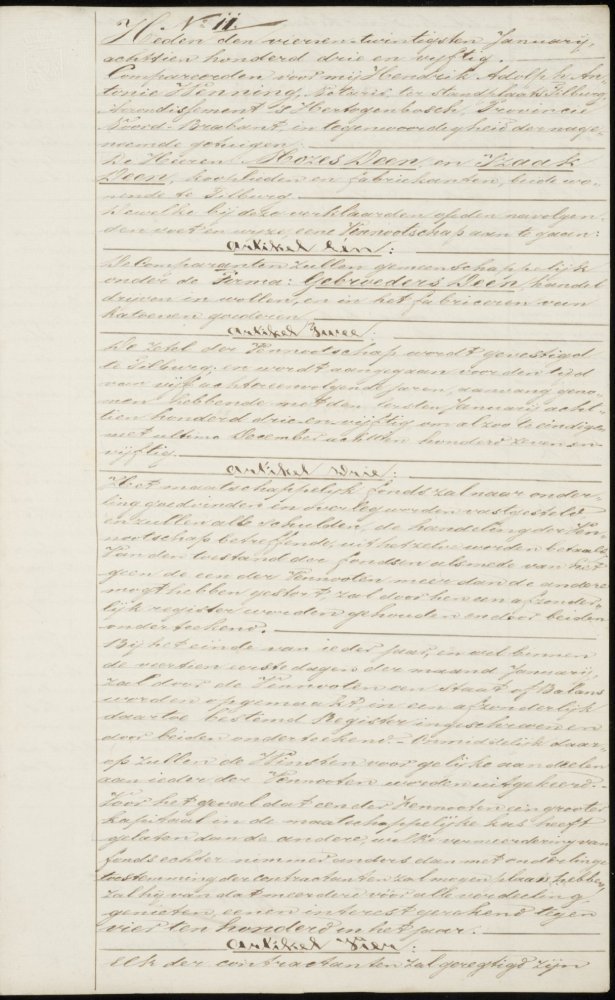 No 11.
Heden den vierentwintigsten Januarij,
achttien honderd drie en vijftig.
Compareerden voor mij Hendrik Adolph An-
tonie Wenning, Notaris ter standplaats Tilburg
Arrondissement 's Hertogenbosch, Provincie
Noord-Brabant, in tegenwoordigheid der nage-
noemde getuigen:
De Heeren Mozes Deen, en Izaak
Deen, kooplieden en fabriekanten, beide wo-
nende te Tilburg
Dewelke bij deze verklaarden op den navolgen-
den voet en wijze eene Vennootschap aan te gaan:
Artikel Eén:
De Comparanten zullen gemeenschappelijk
onder de Firma: Gebroeders Deen, handel
drijven in wollen, en in het fabriceren van
katoenen goederen
Artikel Twee:
De Zetel der Vennootschap wordt gevestigd
te Tilburg; en wordt aangegaan voor den tijd
van vijf achtereenvolgende jaren, aanvang geno-
men hebbende met den eersten Januarij acht-
tien honderd drie en vijftig om alzoo te eindigen
met ultimo December achttien honderd zeven en
vijftig.
Artikel Drie:
Het maatschappelijk fonds zal naar onder-
ling goedvinden en overleg worden vastgesteld
en zullen alle schulden, de handeling der Ven-
nootschap betreffende, uit hetzelve worden betaald
Van den toestand der fondsen alsmede van het
geen de een der Vennooten meer dan de andere
mogt hebben gestort, zal door hen een afzonder-
lijk register worden gehouden en door beiden
onderteekend.
Bij het einde van ieder jaar, en wel binnen
de veertien eerste dagen der maand Januarij,
zal door de Vennooten een Staat of Balans
worden opgemaakt en in een afzonderlijk
daartoe bestemd Register ingeschreven en
door beiden onderteekend. - Onmiddelijk daar-
op zullen de Winsten voor gelijke aandeelen
aan ieder der Vennooten worden uitgekeerd. -
Voor het geval dat een der Vennooten een grooter
kapitaal in de maatschappelijke kas heeft
gelaten dan de andere, welke vermeerdering van
fonds echter nimmer anders dan met onderlinge
toestemming der contractanten zal mogen plaats hebben,
zal hij van dat meerdere vóór alle verdeeling
genieten, eenen interest gerekend tegen
vier ten honderd in het jaar.
Artikel Vier:
Elk der contractanten zal geregtigd zijn